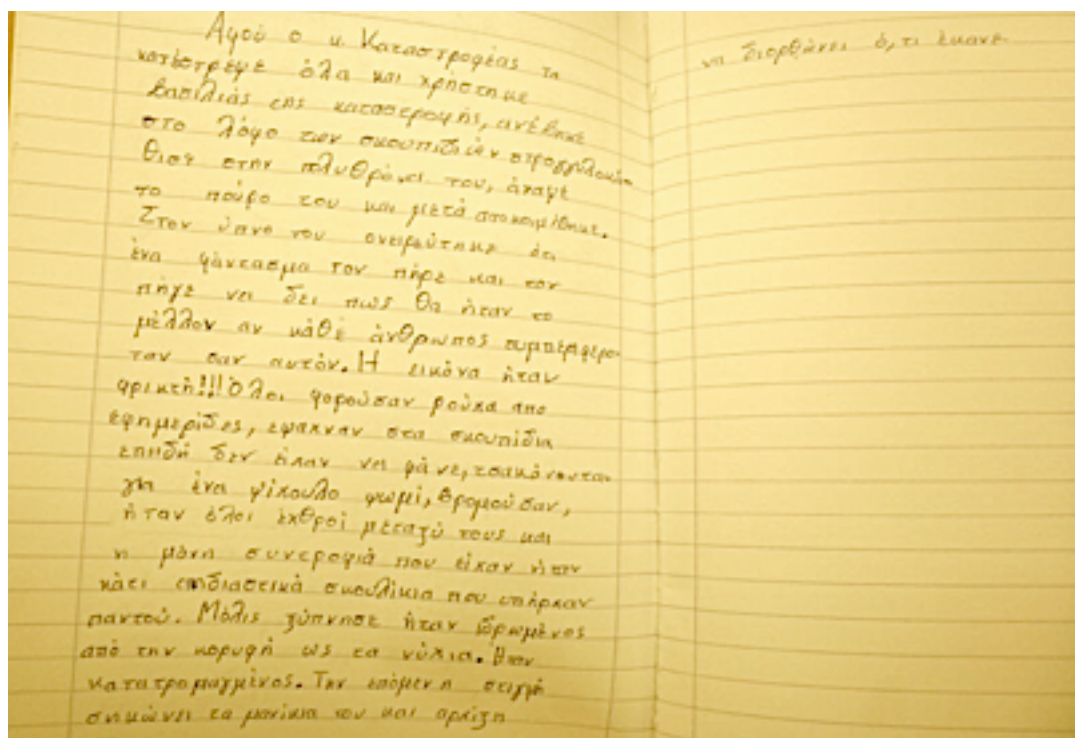 Αφού ο κ. Καταστροφέας τα
κατέστρεψε όλα και χρήστηκε
βασιλιάς της καταστροφής, ανέβηκε
στο λόφο των σκουπιδιών στρογγυλοκά-
θισε στην πολυθρόνα του, άναψε
το πούρο του και μετά αποκοιμήθηκε.
Στον ύπνο του ονειρεύτηκε ότι
ένα φάντασμα τον πήρε και τον
πήγε να δει πως θα ήταν το
μέλλον αν κάθε άνθρωπος συμπεριφερό-
ταν σαν αυτόν. Η εικόνα ήταν
φρικτή!!! Όλοι φορούσαν ρούχα απο
εφημερίδες, εψαχναν στα σκουπίδια
επειδή δεν είχαν να φάνε, τσακόνονταν
για ένα ψίχουλο ψωμί, βρομούσαν,
ήταν όλοι εχθροί μεταξύ τους και
η μόνη συντροφιά που είχαν ήταν
κάτι σκουλίκια που υπήρχαν
παντού. Μόλις ξύπνησε ήταν ιδρωμένος
από την κορυφή ως τα νύχια. Ήταν
κατατρομαγμένος. Την επόμενη στιγμή
σηκώνει τα μανίκια του και αρχίζη
να διορθώνει ό,τι έκανε.